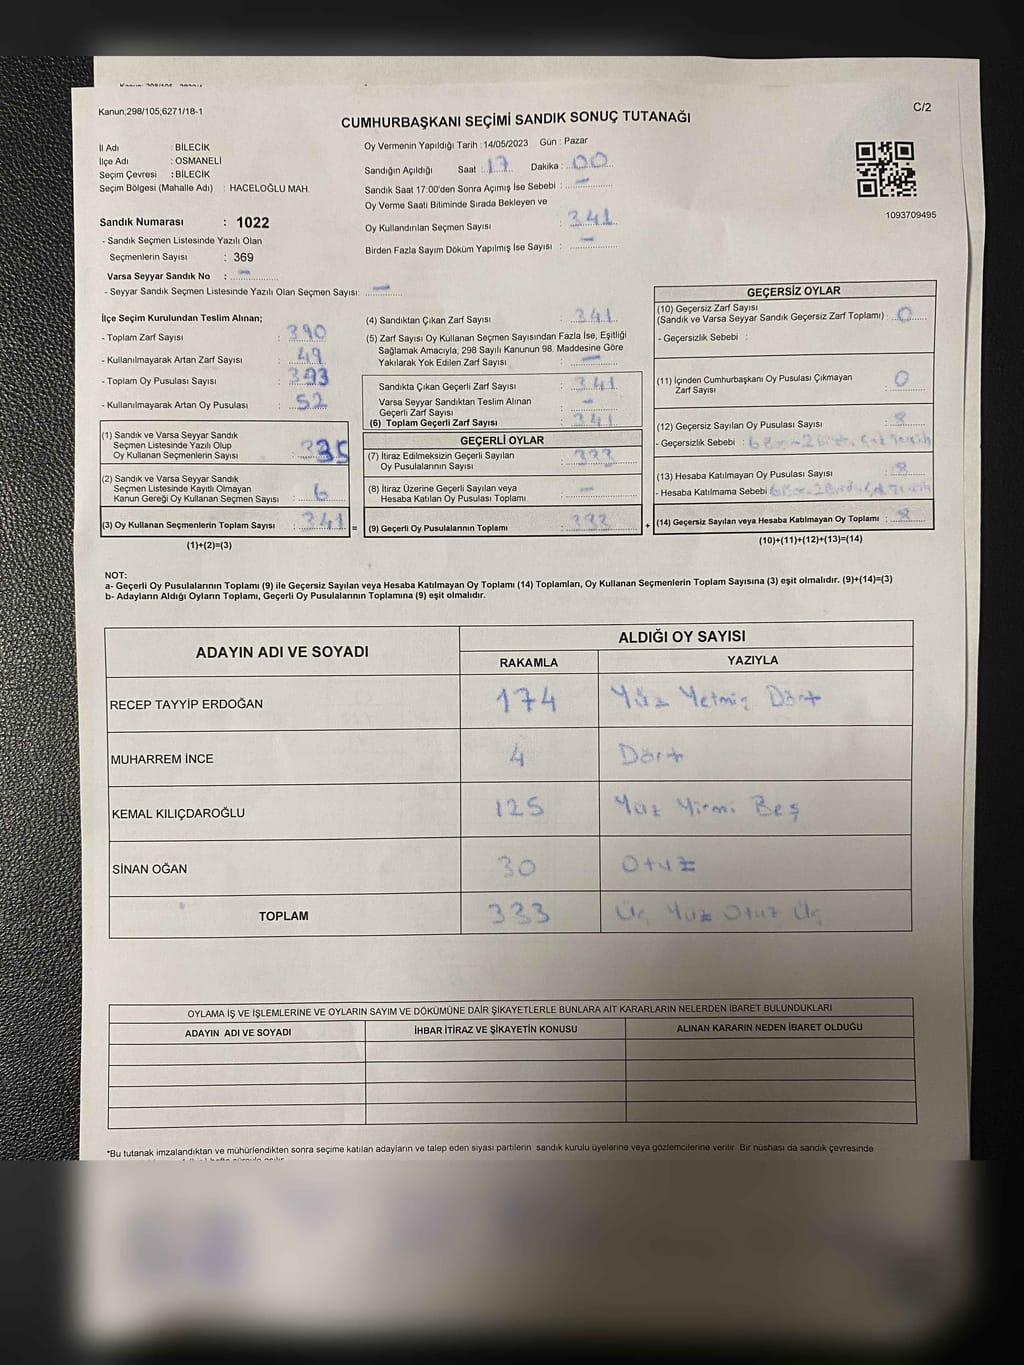 Kanun;298/105;6271/18-1
C/2
CUMHURBAŞKANI SEÇİMİ SANDIK SONUÇ TUTANAĞI
İl Adı : BİLECİK
İlçe Adı : OSMANELİ
Seçim Çevresi : BİLECİK
Seçim Bölgesi (Mahalle Adı) : HACELOĞLU MAH.
Oy Vermenin Yapıldığı Tarih : 14/05/2023 Gün : Pazar
Sandığın Açıldığı Saat : 17 Dakika : 00
Sandık Saat 17:00'den Sonra Açımış İse Sebebi : -
Oy Verme Saati Bitiminde Sırada Bekleyen ve
Oy Kullandırılan Seçmen Sayısı : 341
Birden Fazla Sayım Döküm Yapılmış İse Sayısı : -
1093709495
Sandık Numarası : 1022
- Sandık Seçmen Listesinde Yazılı Olan
Seçmenlerin Sayısı : 369
Varsa Seyyar Sandık No : -
- Seyyar Sandık Seçmen Listesinde Yazılı Olan Seçmen Sayısı: -
İlçe Seçim Kurulundan Teslim Alınan;
- Toplam Zarf Sayısı : 390
- Kullanılmayarak Artan Zarf Sayısı : 49
- Toplam Oy Pusulası Sayısı : 393
- Kullanılmayarak Artan Oy Pusulası : 52
(1) Sandık ve Varsa Seyyar Sandık
Seçmen Listesinde Yazılı Olup
Oy Kullanan Seçmenlerin Sayısı : 335
(2) Sandık ve Varsa Seyyar Sandık
Seçmen Listesinde Kayıtlı Olmayan
Kanun Gereği Oy Kullanan Seçmen Sayısı : 6
(3) Oy Kullanan Seçmenlerin Toplam Sayısı : 341 =
(1)+(2)=(3)
(4) Sandıktan Çıkan Zarf Sayısı : 341
(5) Zarf Sayısı Oy Kullanan Seçmen Sayısından Fazla İse, Eşitliği
Sağlamak Amacıyla; 298 Sayılı Kanunun 98. Maddesine Göre
Yakılarak Yok Edilen Zarf Sayısı : -
Sandıkta Çıkan Geçerli Zarf Sayısı : 341
Varsa Seyyar Sandıktan Teslim Alınan
Geçerli Zarf Sayısı : -
(6) Toplam Geçerli Zarf Sayısı : 341
GEÇERLİ OYLAR
(7) İtiraz Edilmeksizin Geçerli Sayılan
Oy Pusulalarının Sayısı : 333
(8) İtiraz Üzerine Geçerli Sayılan veya
Hesaba Katılan Oy Pusulası Toplamı : -
(9) Geçerli Oy Pusulalarının Toplamı : 333 +
GEÇERSİZ OYLAR
(10) Geçersiz Zarf Sayısı
(Sandık ve Varsa Seyyar Sandık Geçersiz Zarf Toplamı) : 0
- Geçersizlik Sebebi :
(11) İçinden Cumhurbaşkanı Oy Pusulası Çıkmayan
Zarf Sayısı : 0
(12) Geçersiz Sayılan Oy Pusulası Sayısı : 8
- Geçersizlik Sebebi :
(13) Hesaba Katılmayan Oy Pusulası Sayısı : 8
- Hesaba Katılmama Sebebi
(14) Geçersiz Sayılan veya Hesaba Katılmayan Oy Toplamı : 8
(10)+(11)+(12)+(13)=(14)
NOT:
a- Geçerli Oy Pusulalarının Toplamı (9) ile Geçersiz Sayılan veya Hesaba Katılmayan Oy Toplamı (14) Toplamları, Oy Kullanan Seçmenlerin Toplam Sayısına (3) eşit olmalıdır. (9)+(14)=(3)
b- Adayların Aldığı Oyların Toplamı, Geçerli Oy Pusulalarının Toplamına (9) eşit olmalıdır.
ADAYIN ADI VE SOYADI
ALDIĞI OY SAYISI
RAKAMLA YAZIYLA
RECEP TAYYİP ERDOĞAN 174 Yüz Yetmiş Dört
MUHARREM İNCE 4 Dört
KEMAL KILIÇDAROĞLU 125 Yüz Yirmi Beş
SİNAN OĞAN 30 Otuz
TOPLAM 333 Üç Yüz Otuz Üç
OYLAMA İŞ VE İŞLEMLERİNE VE OYLARIN SAYIM VE DÖKÜMÜNE DAİR ŞİKAYETLERLE BUNLARA AİT KARARLARIN NELERDEN İBARET BULUNDUKLARI
ADAYIN ADI VE SOYADI İHBAR İTİRAZ VE ŞİKAYETİN KONUSU ALINAN KARARIN NEDEN İBARET OLDUĞU
*Bu tutanak imzalandıktan ve mühürlendikten sonra seçime katılan adayların ve talep eden siyasi partilerin sandık kurulu üyelerine veya gözlemcilerine verilir. Bir nüshası da sandık çevresinde